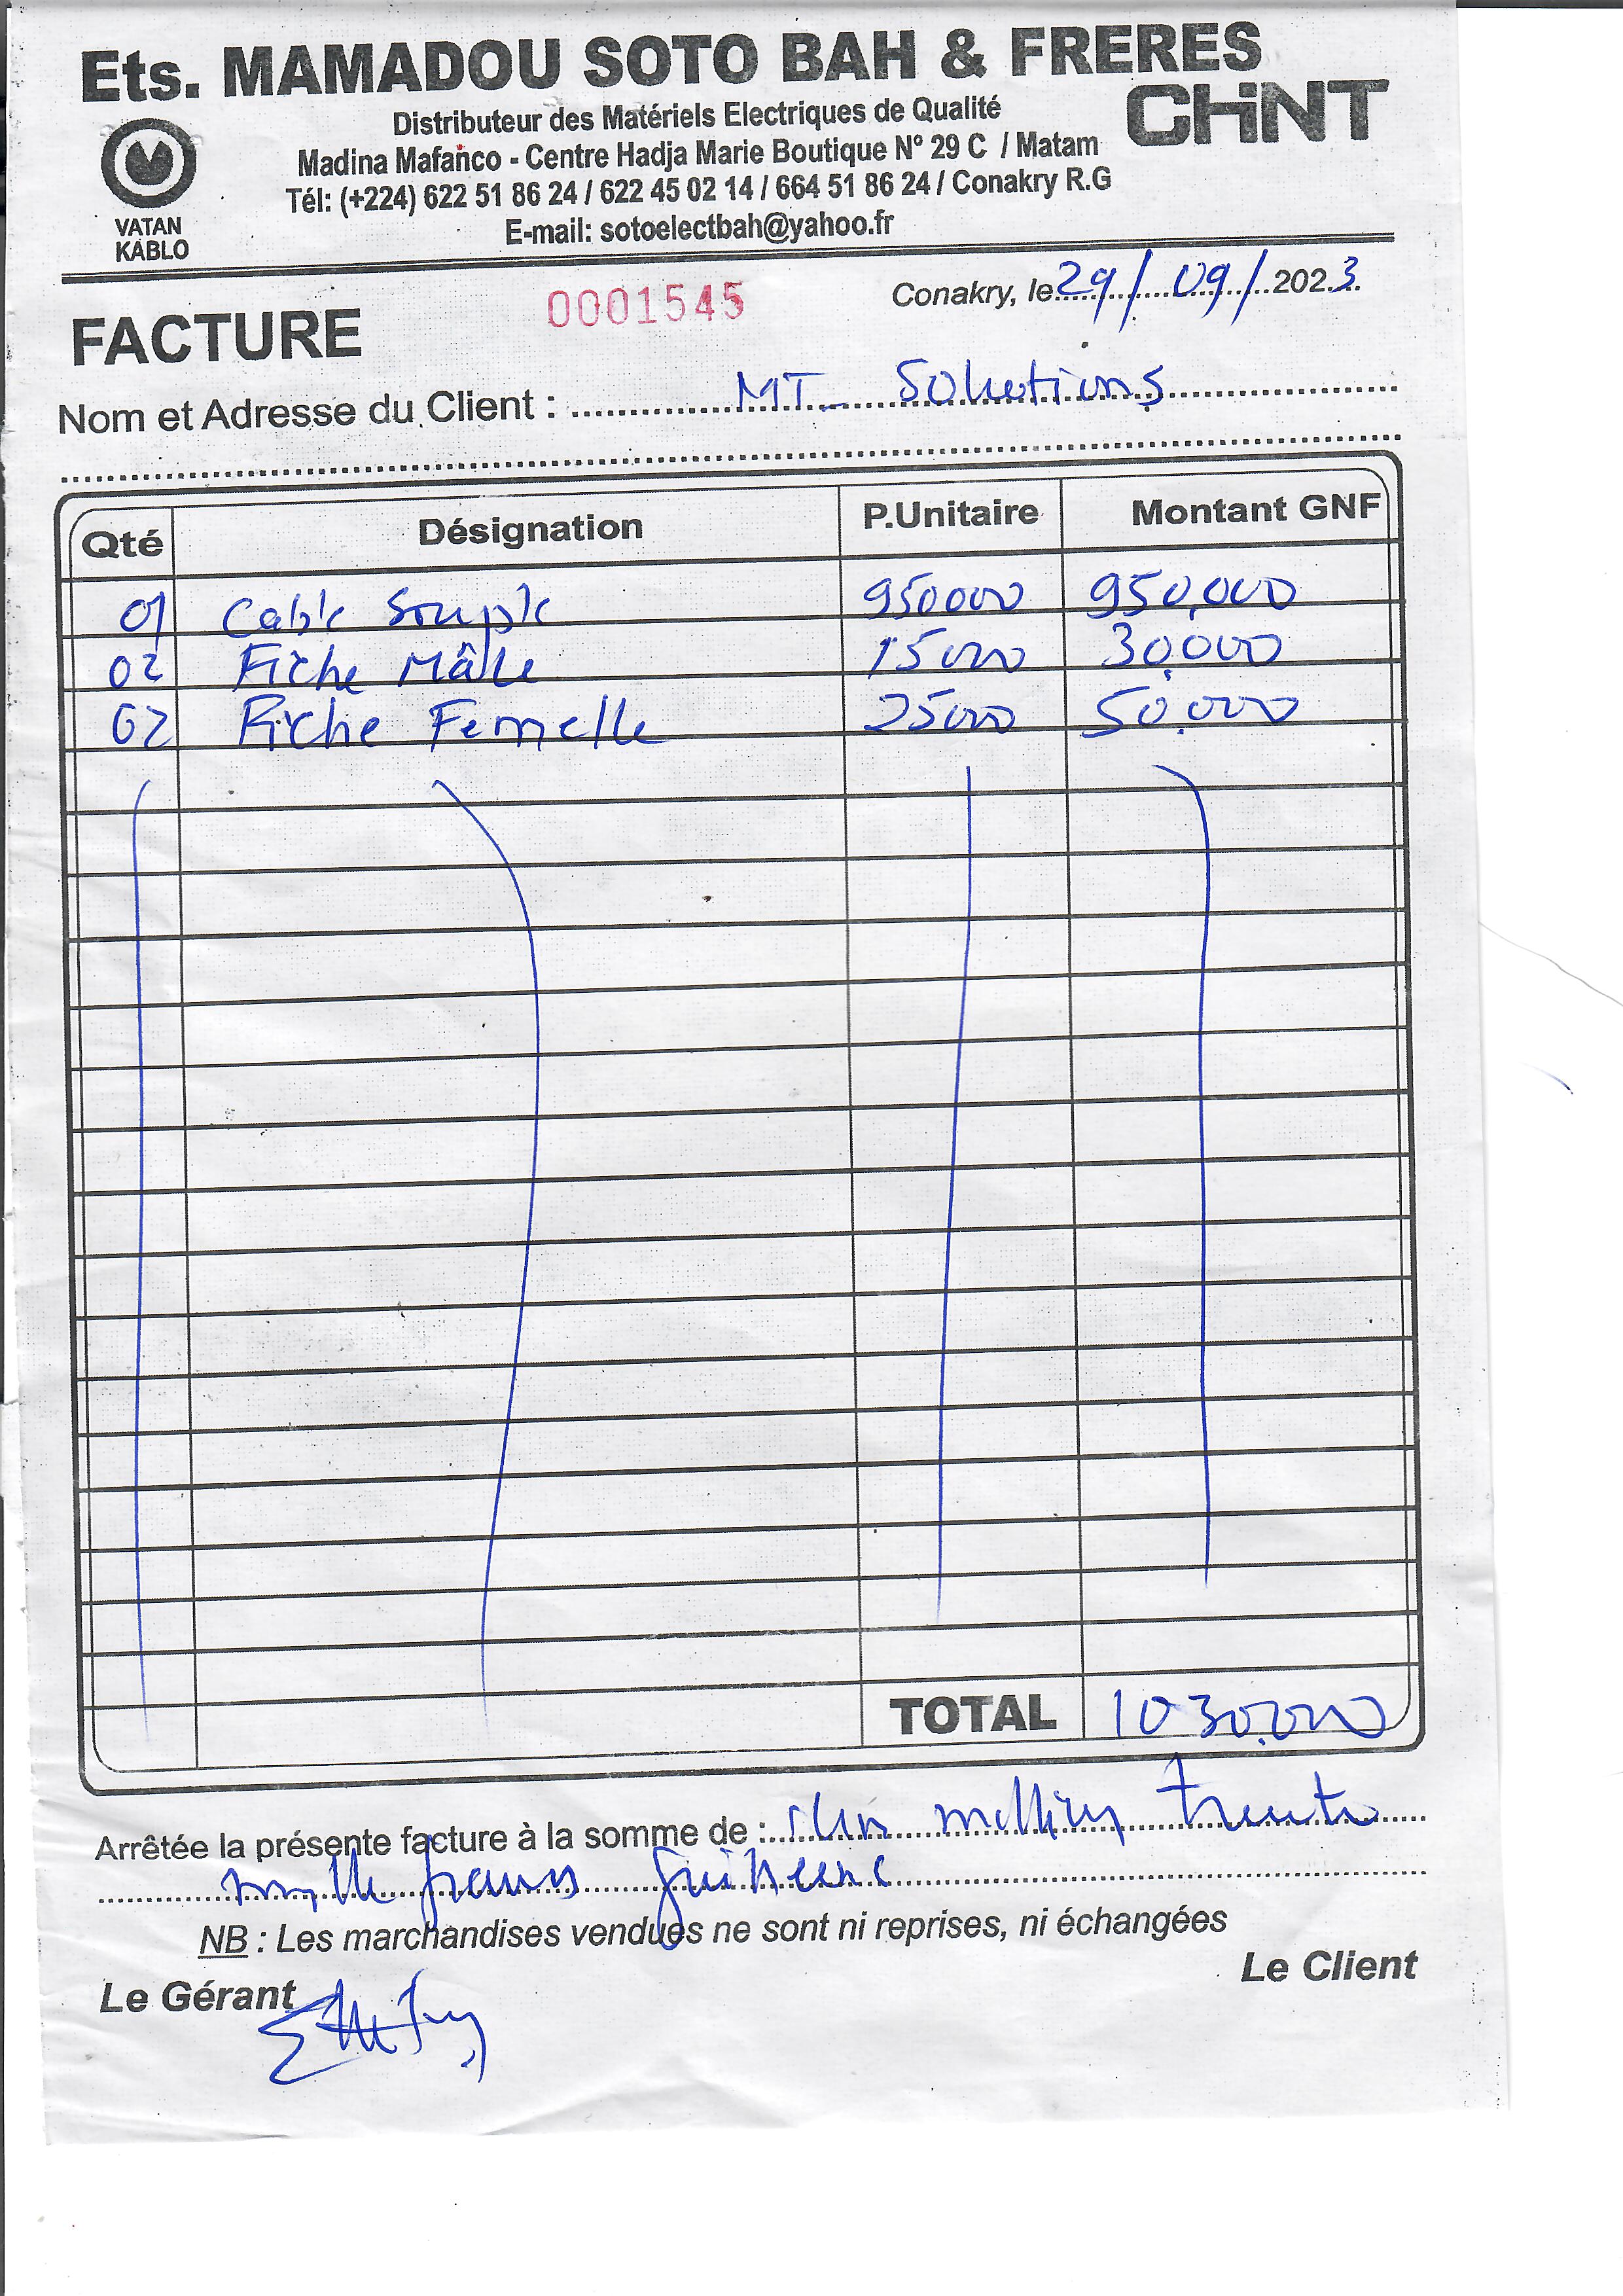 Ets. MAMADOU SOTO BAH & FRERES
CHiNT
Distributeur des Matériels Electriques de Qualité
Madina Mafanco - Centre Hadja Marie Boutique N° 29 C / Matam
Tél: (+224) 622 51 86 24 / 622 45 02 14 / 664 51 86 24 / Conakry R.G
E-mail: sotoelectbah@yahoo.fr
VATAN
KABLO
Conakry, le 29/09/2023
0001545
FACTURE
Nom et Adresse du Client : MT_ Solutions
Qté Désignation P.Unitaire Montant GNF
01 Cable Souple 950000 950.000
02 Fiche Mâle 15000 30.000
02 Fiche Femelle 25000 50.000
TOTAL 1030.000
Arrêtée la présente facture à la somme de : Un million trente
mille francs guineene
NB : Les marchandises vendues ne sont ni reprises, ni échangées
Le Gérant Le Client